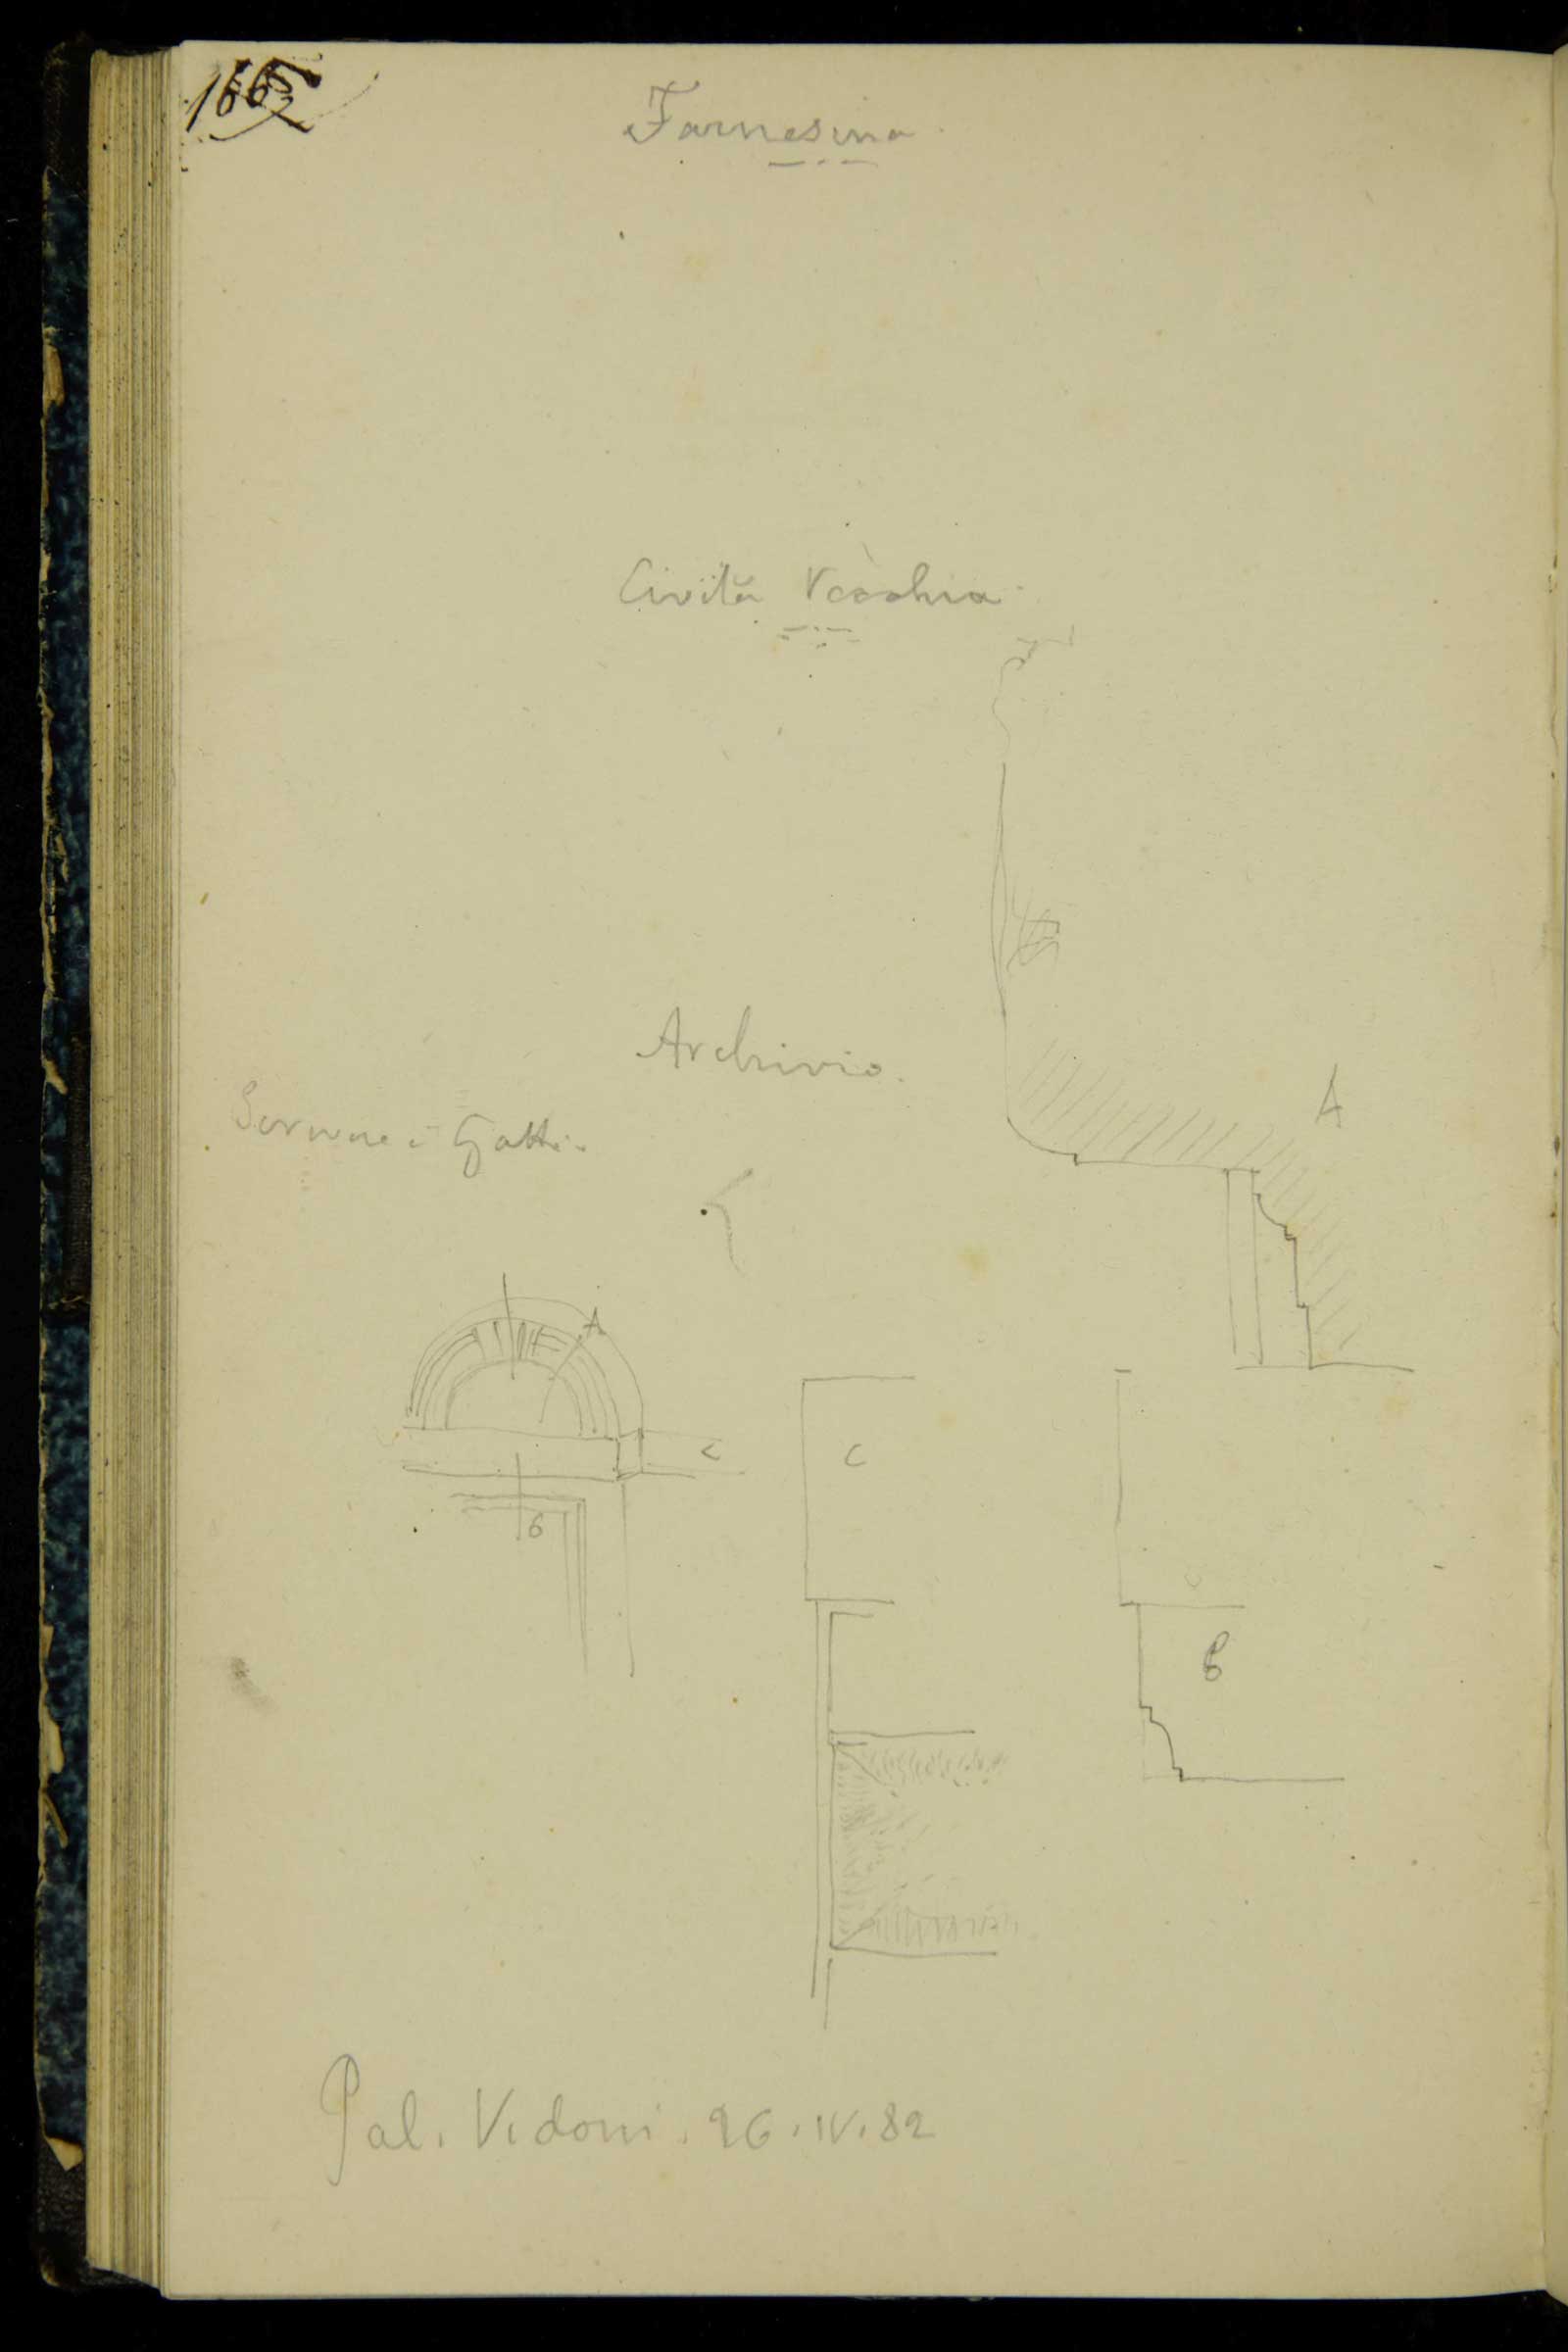 165
Farnesina
Cività Vecchia
Archivio.
Gatti.
A
A
C
C
B
B
Pal. Vidoni. 26. IV. 82